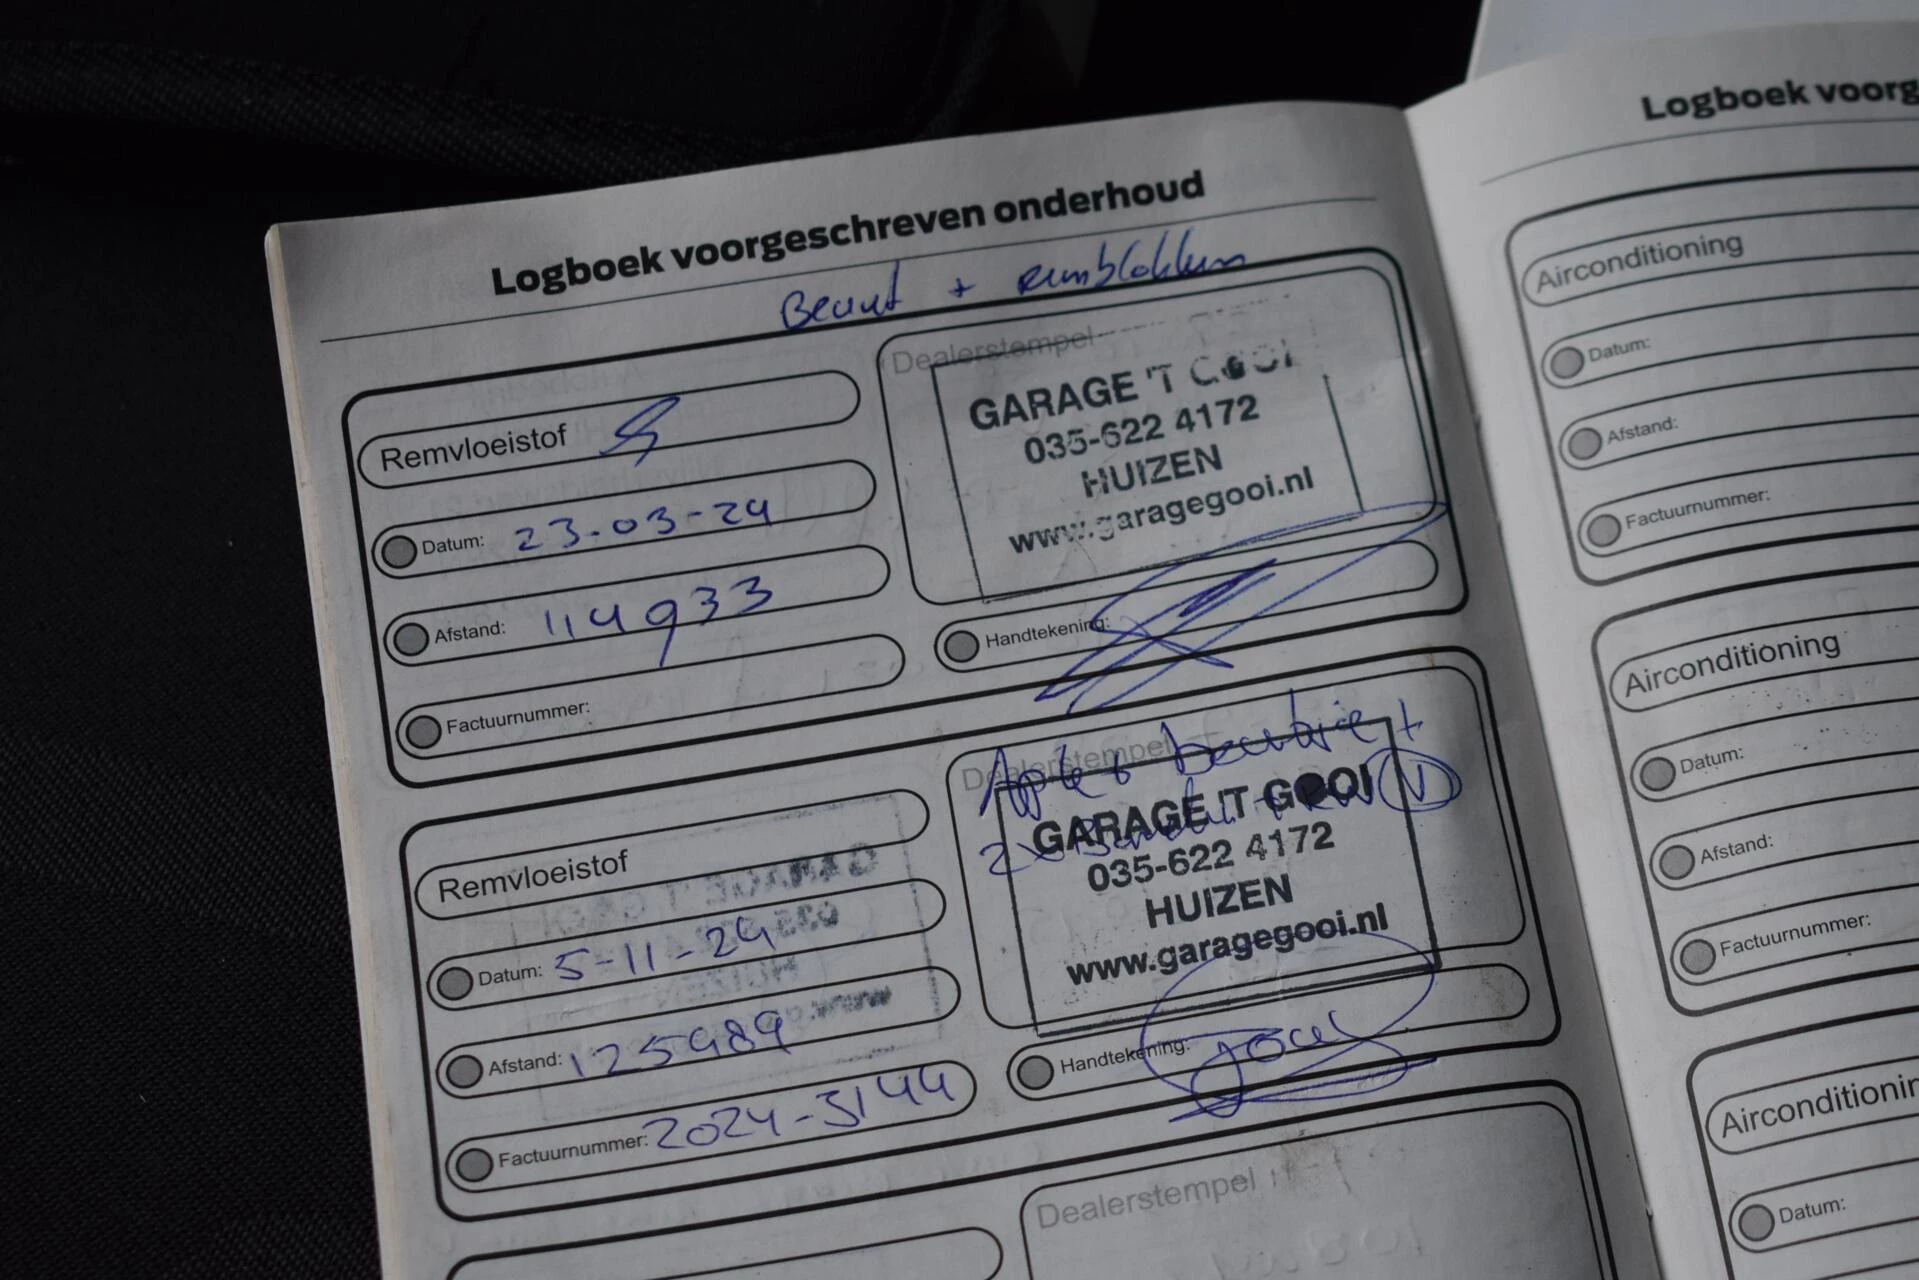 Logboek voorgeschreven onderhoud
+ remblokken
Remvloeistof
Datum: 23-03-24
Afstand: 114933
Factuurnummer:
Dealerstempel
GARAGE 'T GOOI
035-622 4172
HUIZEN
www.garagegooi.nl
Handtekening:
Remvloeistof
Datum: 5-11-24
Afstand: 125989
Factuurnummer: 2024-3144
Dealerstempel
GARAGE 'T GOOI
035-622 4172
HUIZEN
www.garagegooi.nl
Handtekening:
Dealerstempel
Logboek voorg
Airconditioning
Datum:
Afstand:
Factuurnummer:
Airconditioning
Datum:
Afstand:
Factuurnummer:
Airconditionin
Datum: